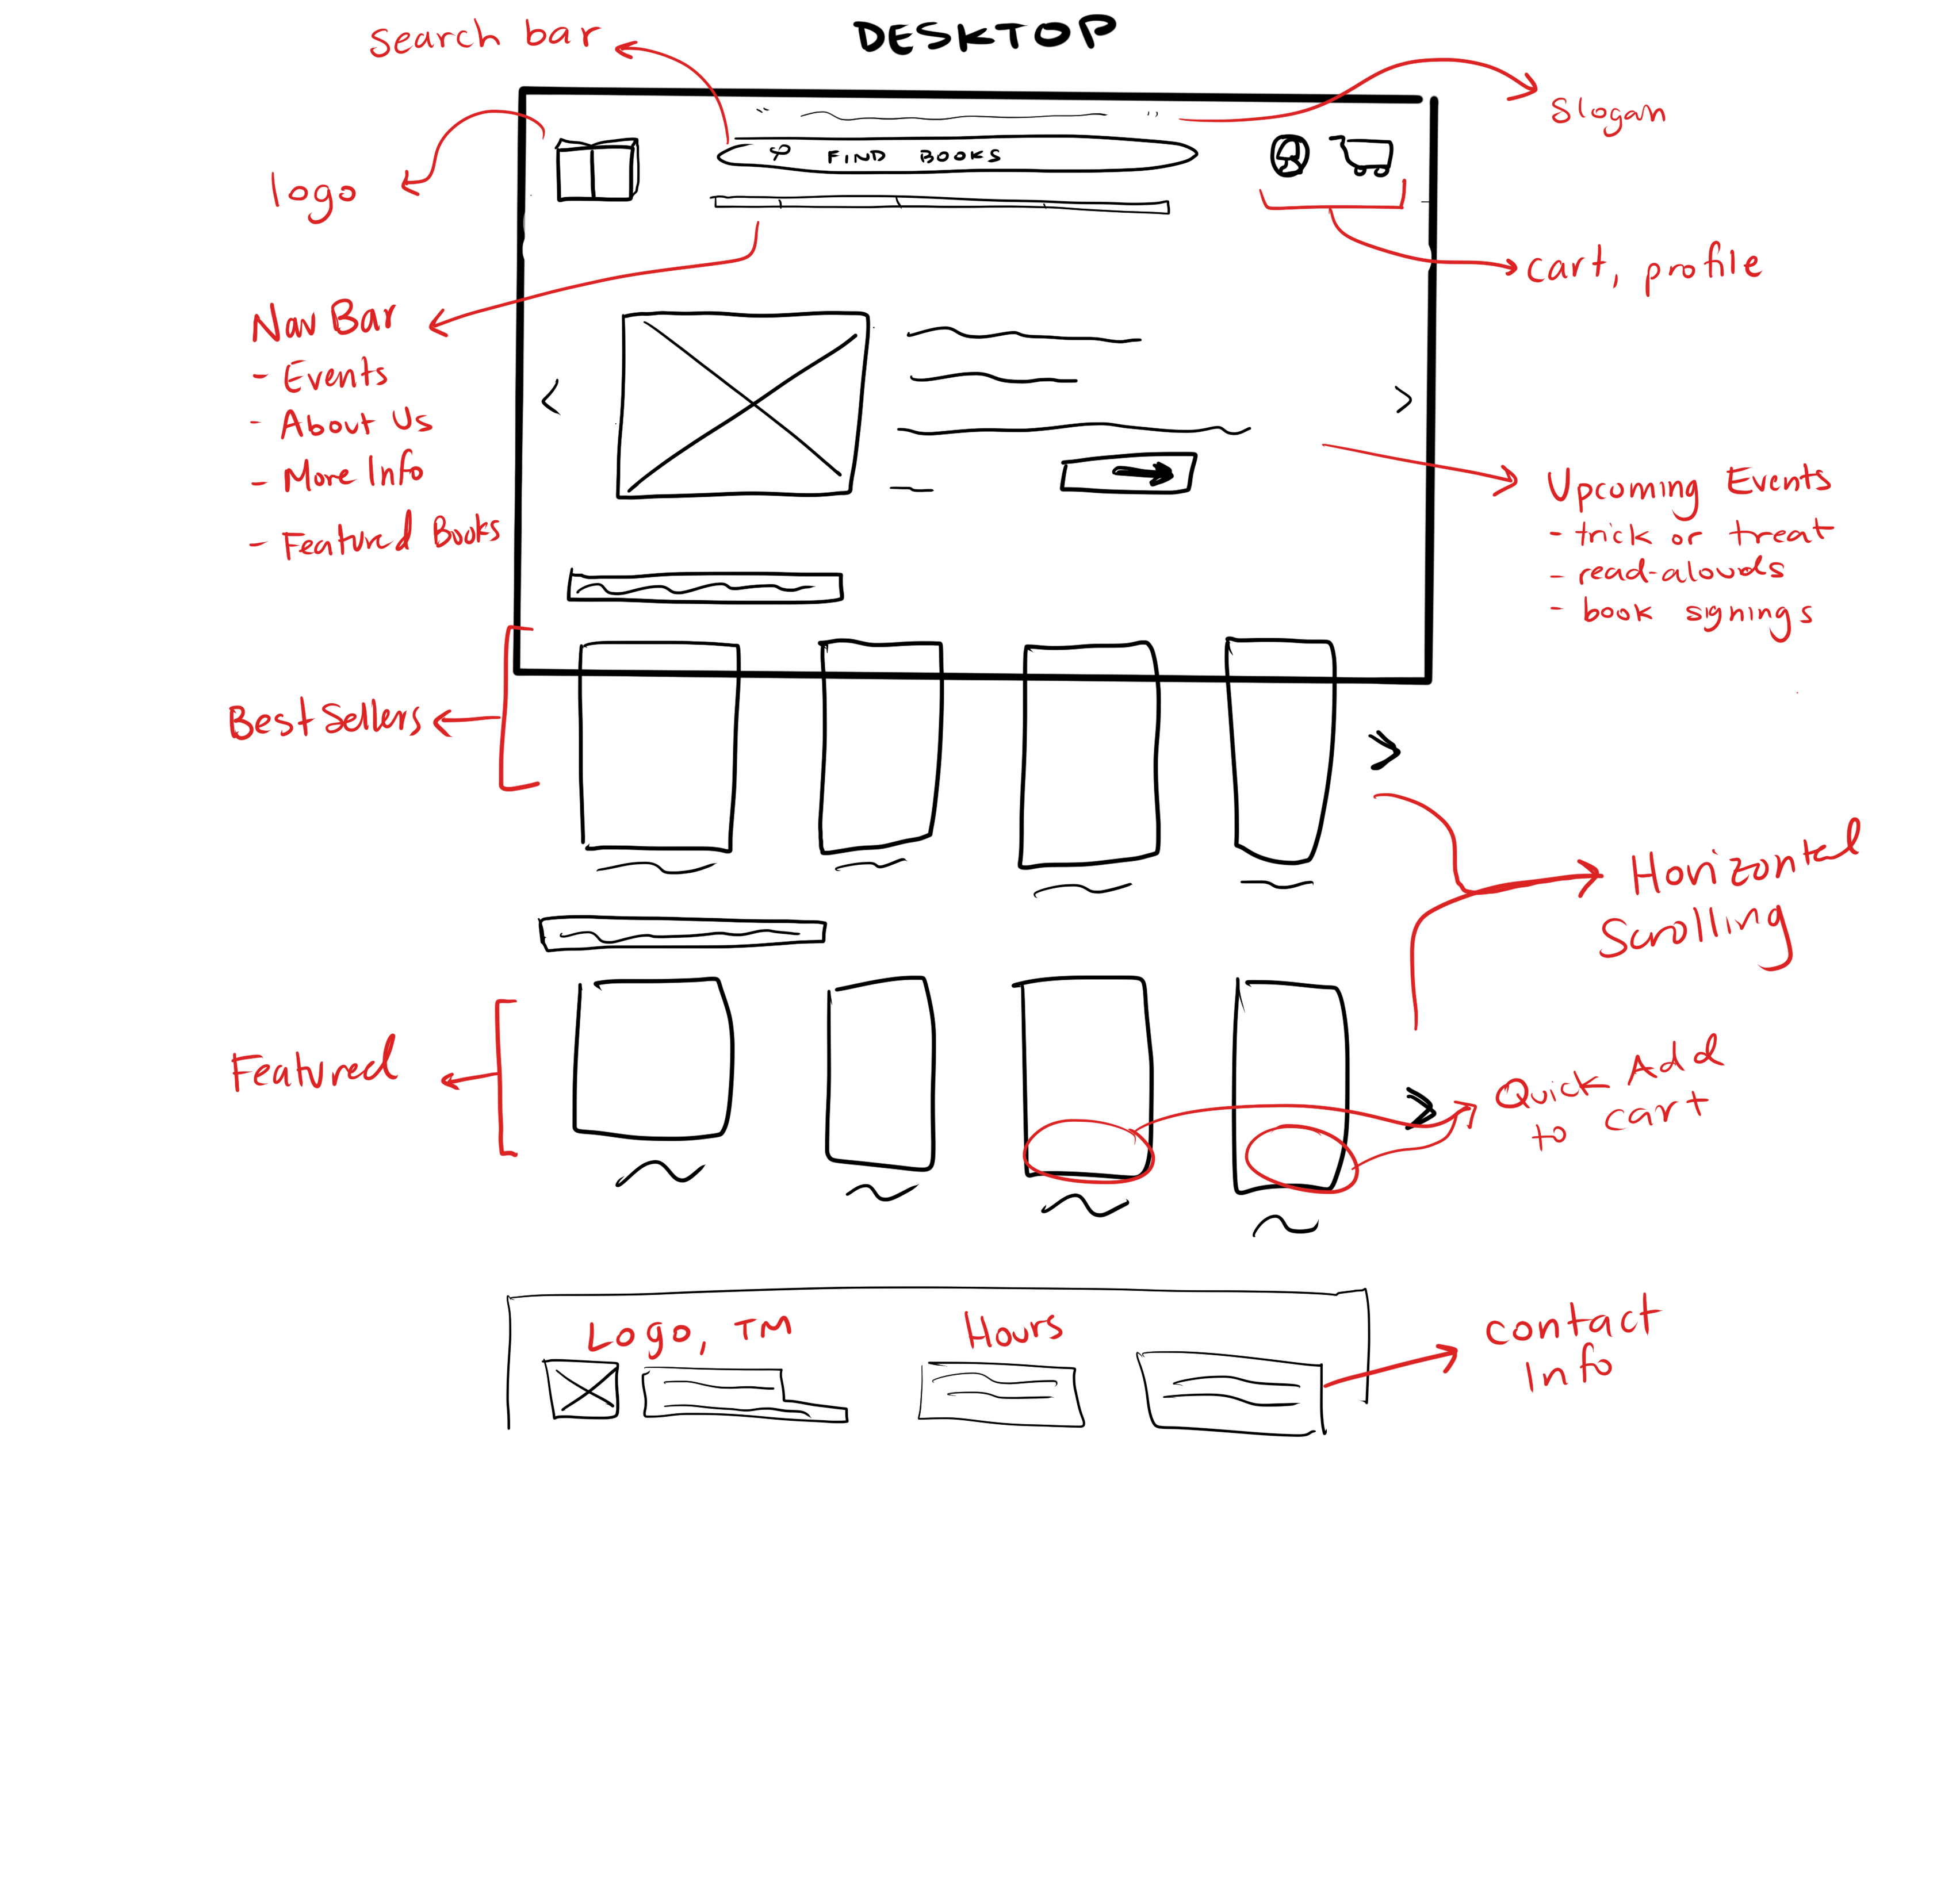 DESKTOP
search bar
slogan
logo
FIND BOOKS
cart, profile
Nav Bar
- Events
- About Us
- More Info
- Featured Books
Upcoming Events
- trick or treat
- read-alouds
- book signings
Best Sellers
Horizontal
Scrolling
Featured
Quick Add
to cart
Logo, TM
Hours
contact
Info